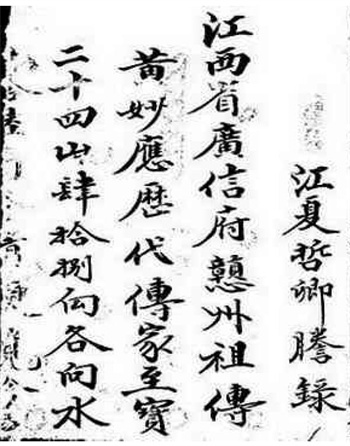 江夏哲卿謄錄
江西省廣信府戇州祖傳
黄妙應歷代傳家至寶
二十四山肆拾捌各向水